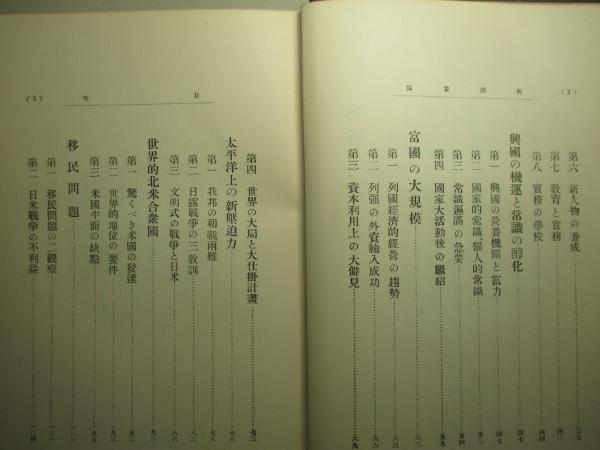 (2) 興國策論
第六 新人物の養成……三七
第七 敎育と實務……四〇
第八 實務の學校……四四
興國の機運と常識の醇化……四七
第一 興國の營養機關と富力……四七
第二 國家的常識個人的常識……五〇
第三 常識遍滿の急要……五四
第四 國家大活動後の繼紹……五九
富國の大規模……六三
第一 列國經濟的經營の趨勢……六三
第二 列强の外資輸入成功……六六
第三 資本利用上の大僻見……六九
目次 (3)
第四 世界の大局と大仕掛計畫……七三
太平洋上の新壓迫力……七八
第一 我邦の和戰兩難……七八
第二 日露戰爭の三敎訓……八二
第三 文明式の戰爭と日米……八六
世界的北米合衆國……九一
第一 驚くべき米國の發達……九一
第二 世界的地位の要件……九三
第三 米國半面の缺點……九九
移民問題……一〇一
第一 移民問題の二觀察……一〇一
第二 日米戰爭の不利益……一〇四